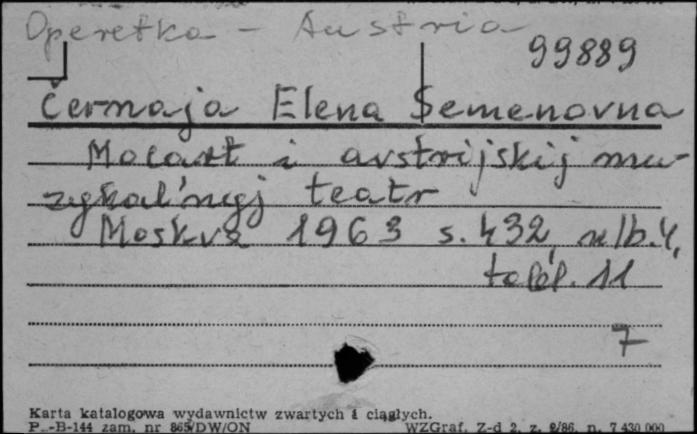 Operetka - Austria
99889
Černaja Elena Semenovna
Mocart i avstrijskij mu-
zykal'nyj teatr
Moskva 1963 s. 432, nlb. 4,
tabl. 11
7
Karta katalogowa wydawnictw zwartych i ciągłych.
P..-B-144 zam. nr 865/DW/ON WZGraf. Z-d 2. z. 2/86. n. 7 430 000